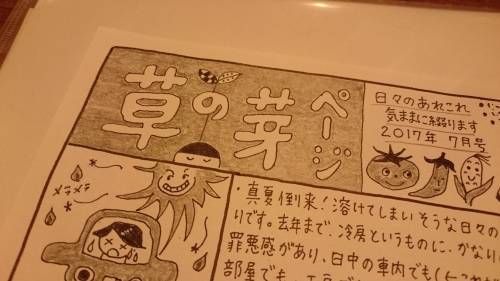 草の芽
ページ
日々のあれこれ
気ままに綴ります
2017年 7月号
メラメラ
・真夏倒来！溶けてしまいそうな日々の
りです。去年まで、冷房というものに、かなりの
罪悪感があり、日中の車内でも
部屋でも、